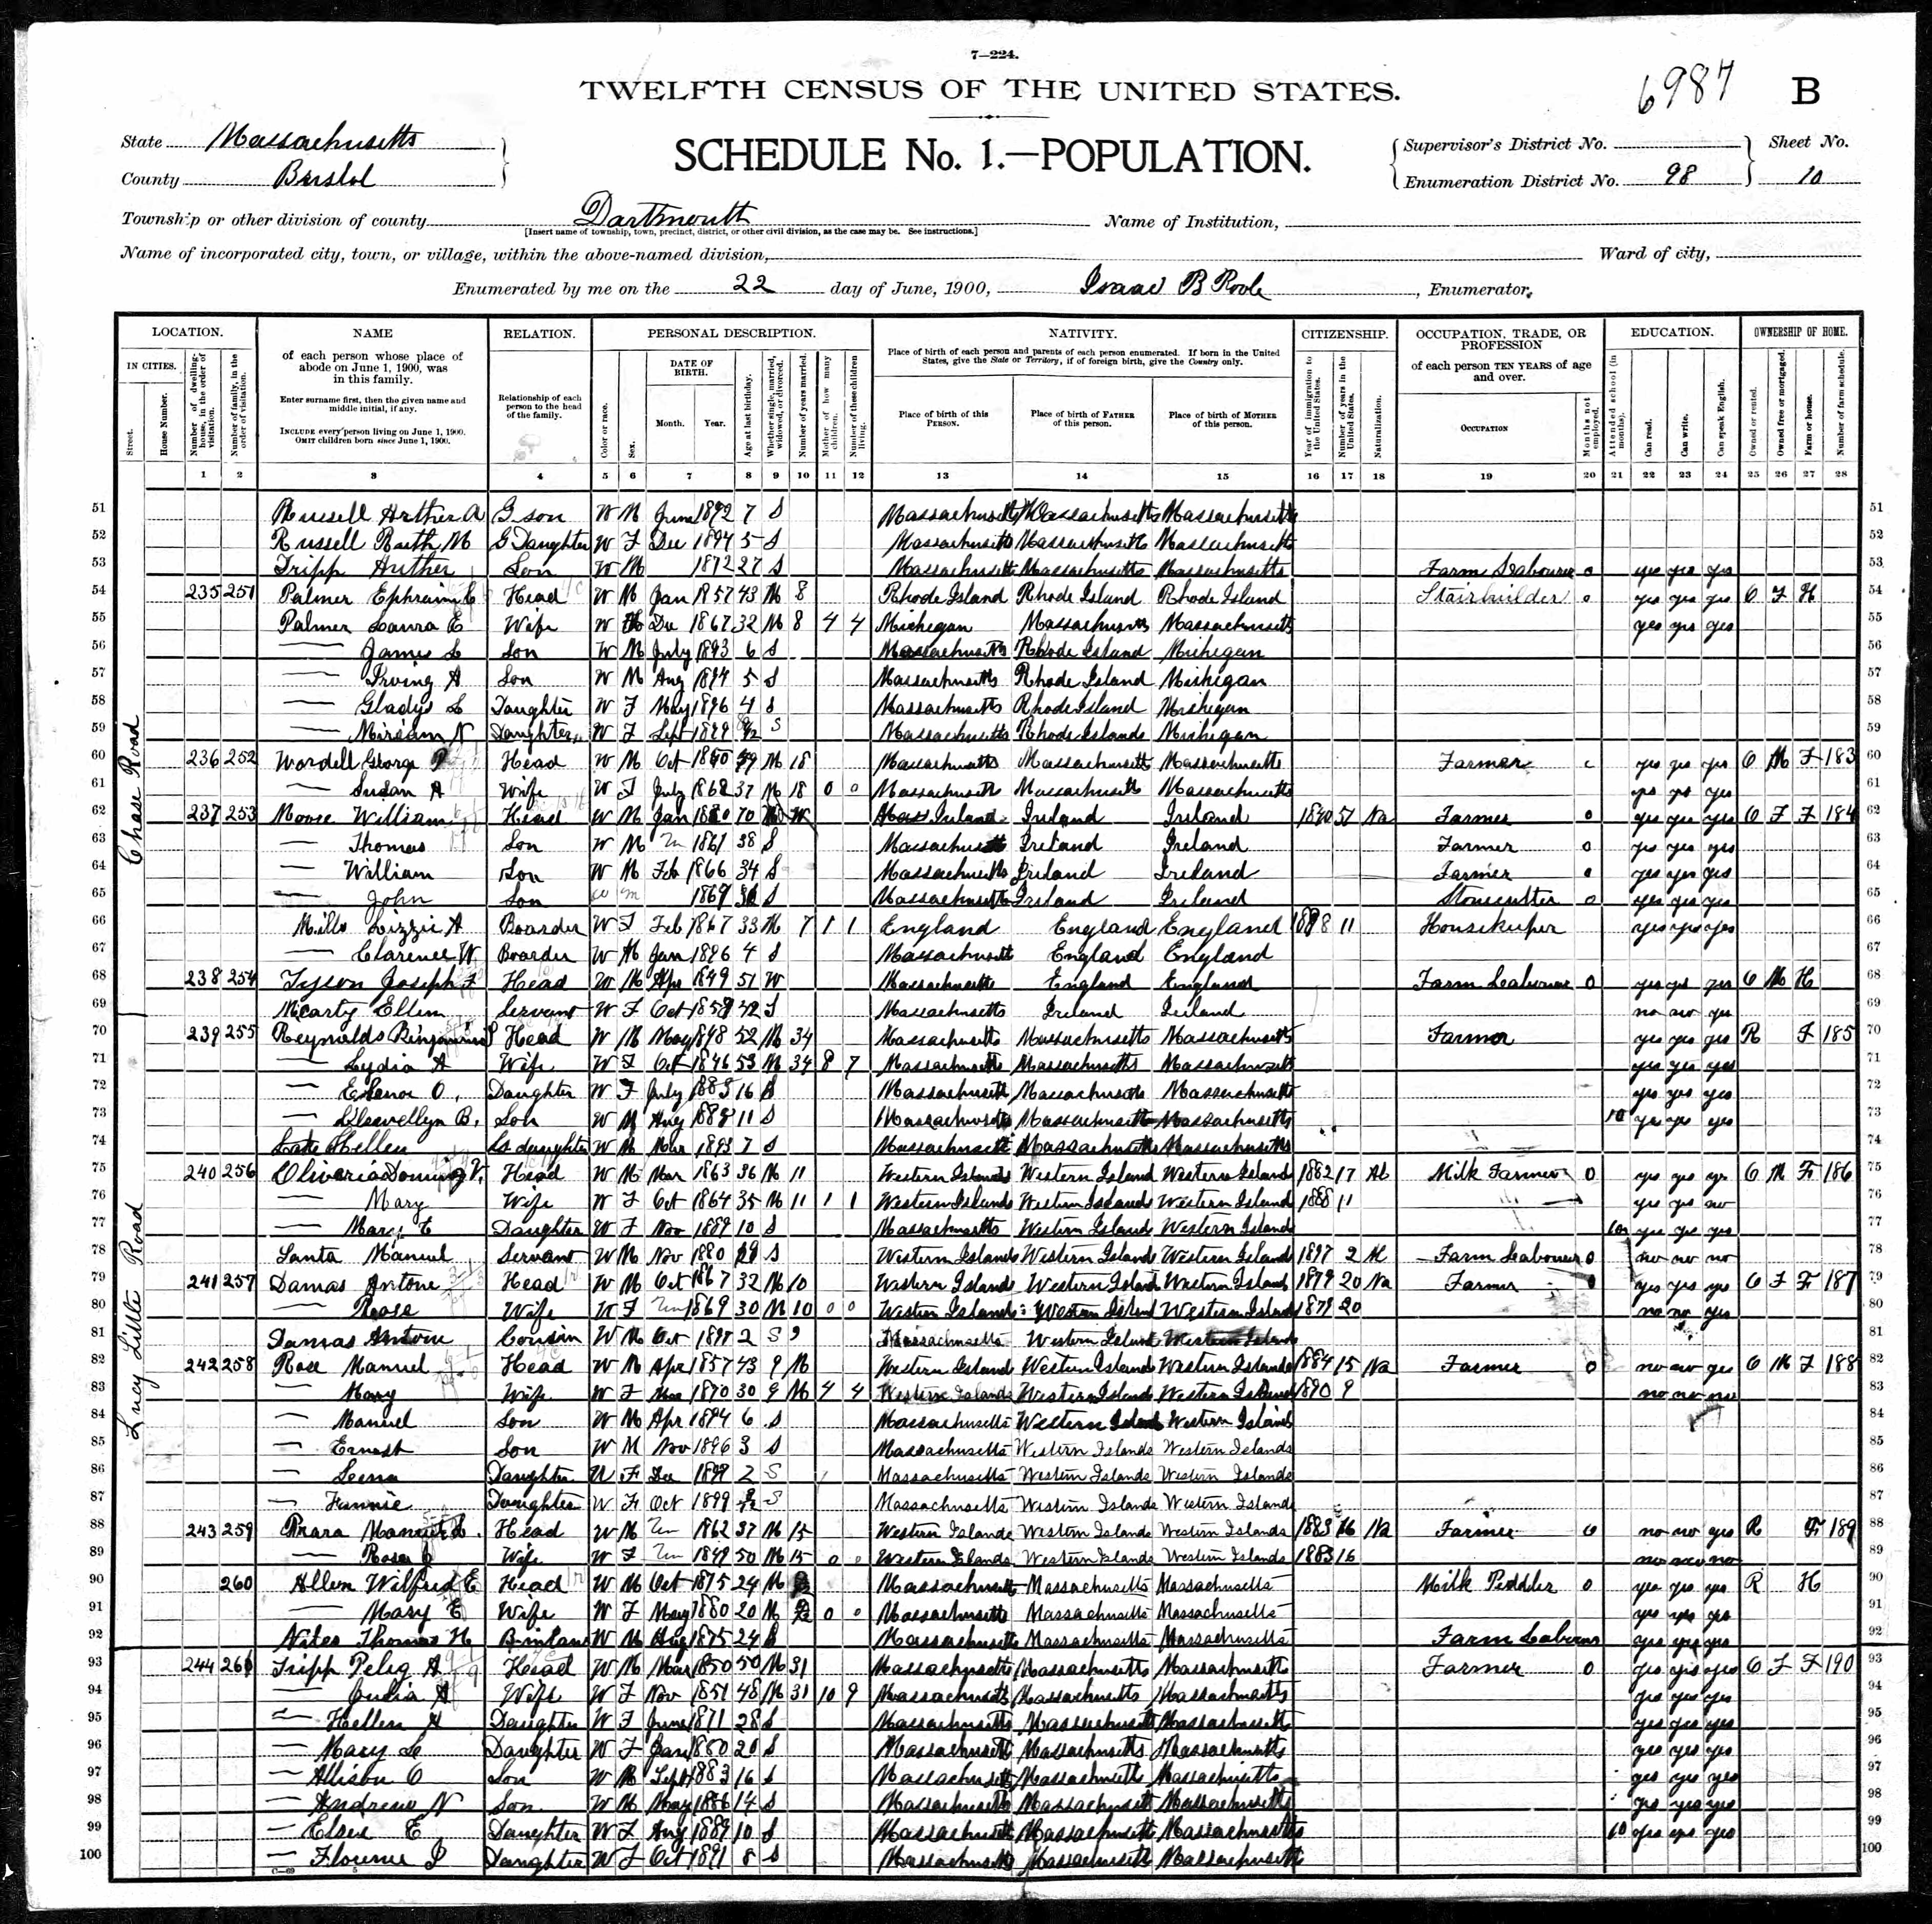 7—224.
TWELFTH CENSUS OF THE UNITED STATES.
6987 B
State Massachusetts
County Bristol
SCHEDULE No. 1.—POPULATION.
Supervisor's District No.
Enumeration District No. 98
Sheet No.
10
Township or other division of county Dartmouth
[Insert name of township, town, precinct, district, or other civil division, as the case may be. See instructions.]
Name of Institution,
Name of incorporated city, town, or village, within the above-named division,
Ward of city,
Enumerated by me on the 22 day of June, 1900, Isaac B , Enumerator.
LOCATION. NAME RELATION. PERSONAL DESCRIPTION. NATIVITY. CITIZENSHIP. OCCUPATION, TRADE, OR PROFESSION EDUCATION. OWNERSHIP OF HOME.
IN CITIES.
Street.
House Number.
Number of dwelling-house, in the order of visitation.
Number of family, in the order of visitation.
of each person whose place of abode on June 1, 1900, was in this family.
Enter surname first, then the given name and middle initial, if any.
INCLUDE every person living on June 1, 1900.
OMIT children born since June 1, 1900.
Relationship of each person to the head of the family.
Color or race.
Sex.
DATE OF BIRTH.
Month. Year.
Age at last birthday.
Whether single, married, widowed, or divorced.
Number of years married.
Mother of how many children.
Number of these children living.
Place of birth of each person and parents of each person enumerated. If born in the United States, give the State or Territory, if of foreign birth, give the Country only.
Place of birth of this PERSON.
Place of birth of FATHER of this person.
Place of birth of MOTHER of this person.
Year of immigration to the United States.
Number of years in the United States.
Naturalization.
of each person TEN YEARS of age and over.
OCCUPATION
Months not employed.
Attended school (in months).
Can read.
Can write.
Can speak English.
Owned or rented.
Owned free or mortgaged.
Farm or house.
Number of farm schedule.
1 2 3 4 5 6 7 8 9 10 11 12 13 14 15 16 17 18 19 20 21 22 23 24 25 26 27 28
Chase Road
Lucy Little Road
51 Russell Arther A G son W M June 1892 7 S Massachusetts Massachusetts Massachusetts 51
52 Russell Ruth M G Daughter W F Dec 1894 5 S Massachusetts Massachusetts Massachusetts 52
53 Tripp Arther Son W M 1872 27 S Massachusetts Massachusetts Massachusetts Farm Labourer 0 yes yes yes 53
54 235 251 Palmer Ephraim C Head W M Jan 1857 43 M 8 Rhode Island Rhode Island Rhode Island Stairbuilder 0 yes yes yes O F H 54
55 Palmer Laura E Wife W Dec 1867 32 M 8 4 4 Michigan Massachusetts Massachusetts yes yes yes 55
56 — James L Son W M July 1893 6 S Massachusetts Rhode Island Michigan 56
57 — Irving A Son W M Aug 1894 5 S Massachusetts Rhode Island Michigan 57
58 — Gladys L Daughter W F May 1896 4 S Massachusetts Rhode Island Michigan 58
59 — Miriam N Daughter W F Sept 1899 S Massachusetts Rhode Islands Michigan 59
60 236 252 Wordell George P Head W M Oct M 18 Massachusetts Massachusetts Massachusetts Farmer yes yes yes O M F 183 60
61 — Susan A Wife W F July 1862 37 M 18 0 0 Massachusetts Massachusetts Massachusetts yes yes yes 61
62 237 253 Moore William Head W M Jan 70 Ireland Ireland Ireland 1840 51 Na Farmer 0 yes yes yes O F F 184 62
63 — Thomas Son W M Un 1861 38 S Massachusetts Ireland Ireland Farmer 0 yes yes yes 63
64 — William Son W M Feb 1866 34 S Massachusetts Ireland Ireland Farmer 0 yes yes yes 64
65 — John Son W M 1869 S Massachusetts Ireland Ireland Stonecutter 0 yes yes yes 65
66 Mills Lizzie A Boarder W F Feb 1867 33 M 7 1 1 England England England 11 Housekeeper yes yes yes 66
67 — Clarence W. Boarder W M Jan 1896 4 S Massachusetts England England 67
68 238 254 Tyson Joseph F Head W M Apr 1849 51 W Massachusetts England England Farm Labourer 0 yes yes yes O M H 68
69 Mcarty Ellen Servant W F Oct 42 S Massachusetts Ireland Ireland no no yes 69
70 239 255 Reynolds Benjamin Head W M May 1848 52 M 34 Massachusetts Massachusetts Massachusetts Farmer yes yes yes R F 185 70
71 — Lydia A Wife W F Oct 1846 53 M 34 8 7 Massachusetts Massachusetts Massachusetts yes yes yes 71
72 — O. Daughter W F July 1883 16 S Massachusetts Massachusetts Massachusetts yes yes yes 72
73 — Llewellyn B. Son W M Aug 1888 11 S Massachusetts Massachusetts Massachusetts 10 yes yes yes 73
74 Hellen daughter W Mar 1893 7 S Massachusetts Massachusetts Massachusetts 74
75 240 256 V. Head W M Mar 1863 36 M 11 Western Islands Western Island Western Islands 1882 17 Al Milk Farmer 0 yes yes yes O M F 186 75
76 — Mary Wife W F Oct 1864 35 M 11 1 1 Western Islands Western Islands Western Island 1888 11 yes yes no 76
77 — Mary E Daughter W F Nov 1889 10 S Massachusetts Western Island Western Island yes yes yes 77
78 Santa Manuel Servant W M Nov 1880 S Western Islands Western Islands Western Islands 1897 2 Al Farm Labourer 0 no no no 78
79 241 257 Damas Antone Head W M Oct 1867 32 M 10 Western Islands Western Island Western Island 1879 20 Na Farmer yes yes yes O F F 187 79
80 — Rose Wife W F Un 1869 30 M 10 0 0 Western Islands Western Island Western Islands 1879 20 no no yes 80
81 Damas Antone Cousin W M Oct 1897 2 S Massachusetts Western Island Western Islands 81
82 242 258 Rose Manuel Head W M Apr 1857 43 9 M Western Island Western Islands Western Islands 1884 15 Na Farmer 0 no no yes O M F 188 82
83 — Mary Wife W F Mar 1870 30 9 M 4 4 Western Islands Western Island Western Island 1890 9 no no no 83
84 — Manuel Son W M Apr 1894 6 S Massachusetts Western Islands Western Islands 84
85 — Ernest Son W M Nov 1896 3 S Massachusetts Western Islands Western Islands 85
86 — Leena Daughter W F Dec 2 S Massachusetts Western Islands Western Islands 86
87 — Fannie Daughter W F Oct 1899 S Massachusetts Western Islands Western Islands 87
88 243 259 Head W M Un 1862 37 M 15 Western Islands Western Islands Western Islands 1883 16 Na Farmer 0 no no yes R F 189 88
89 — Rosa Wife W F Un 1849 50 M 15 0 0 Western Islands Western Islands Western Islands 1883 16 no no no 89
90 260 Allen Wilfred E Head W M Oct 1875 24 M Massachusetts Massachusetts Massachusetts Milk Peddler 0 yes yes yes R H 90
91 — Mary E Wife W F May 1880 20 M 0 0 Massachusetts Massachusetts Massachusetts yes yes yes 91
92 Niles Thomas H W M Aug 1875 24 S Massachusetts Massachusetts Massachusetts Farm Labourer yes yes yes 92
93 244 261 Tripp Peleg A Head W M Mar 1850 50 M 31 Massachusetts Massachusetts Massachusetts Farmer 0 yes yes yes O F F 190 93
94 — Julia A Wife W F Nov 1851 48 M 31 10 9 Massachusetts Massachusetts Massachusetts yes yes yes 94
95 — Hellen A Daughter W F June 1871 28 S Massachusetts Massachusetts Massachusetts yes yes yes 95
96 — Mary L Daughter W F Jan 1880 20 S Massachusetts Massachusetts Massachusetts yes yes yes 96
97 — Allison O Son W M Sept 1883 16 S Massachusetts Massachusetts Massachusetts yes yes yes 97
98 — Andrew N Son W M May 1886 14 S Massachusetts Massachusetts Massachusetts yes yes yes 98
99 — Elsie E Daughter W F Aug 1889 10 S Massachusetts Massachusetts Massachusetts 10 yes yes yes 99
100 — Florence P Daughter W F Oct 1891 8 S Massachusetts Massachusetts Massachusetts 100
C—69 5